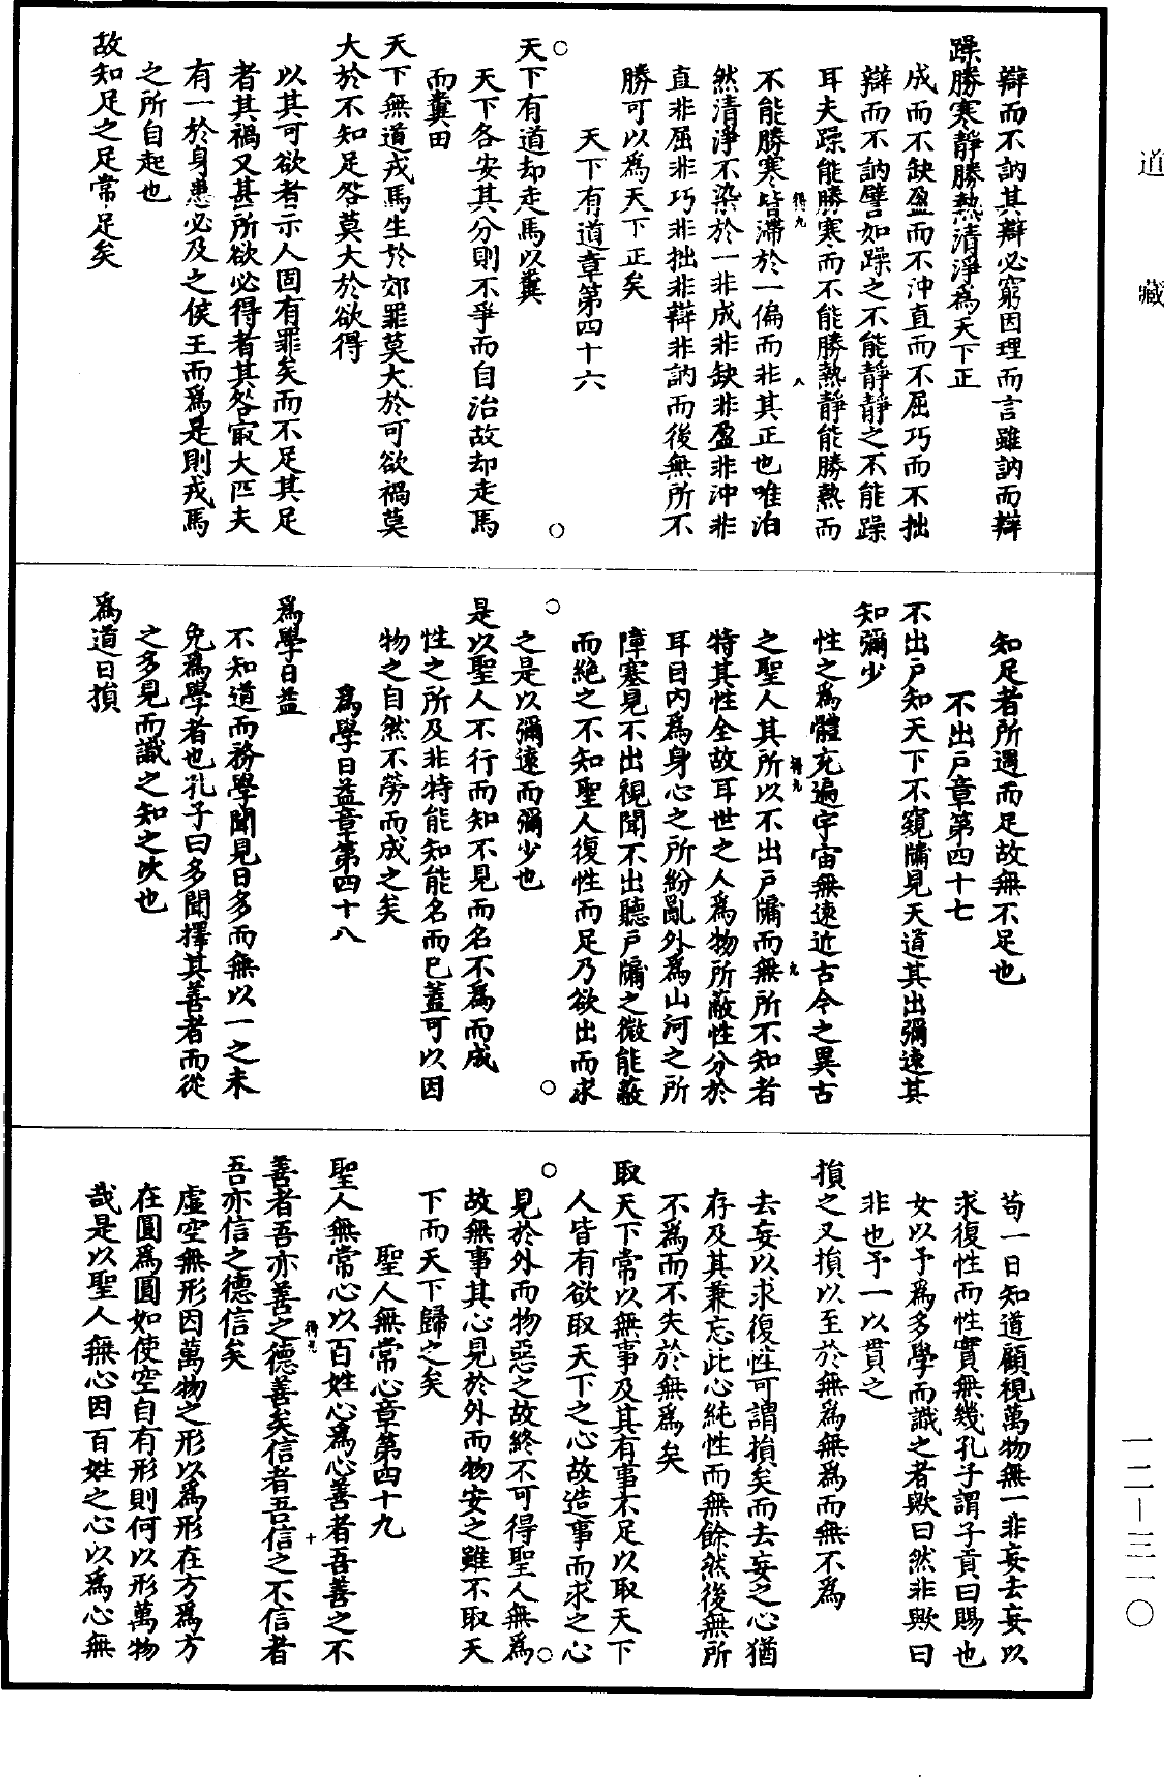 道藏
辯而不訥其辯必窮因理而言雖訥而辯
躁勝寒靜勝熱清淨為天下正
成而不缺盈而不沖直而不屈巧而不拙
辯而不訥譬如躁之不能靜靜之不能躁
耳夫躁能勝寒而不能勝熱靜能勝熱而
不能勝寒皆滯於一偏而非其正也唯泊
然清淨不染於一非成非缺非盈非沖非
直非屈非巧非拙非辯非訥而後無所不
勝可以為天下正矣
天下有道章第四十六
天下有道却走馬以糞
天下各安其分則不爭而自治故却走馬
而糞田
天下無道戎馬生於郊罪莫大於可欲禍莫
大於不知足咎莫大於欲得
以其可欲者示人固有罪矣而不足其足
者其禍又甚所欲必得者其咎㝡大匹夫
有一於身患必及之侯王而爲是則戎馬
之所自起也
故知足之足常足矣
知足者所遇而足故無不足也
不出戶章第四十七
不出戶知天下不窺牖見天道其出彌遠其
知彌少
性之爲體充遍宇宙無遠近古今之異古
之聖人其所以不出戶牖而無所不知者
特其性全故耳世之人爲物所蔽性分於
耳目內爲身心之所紛亂外爲山河之所
障塞見不出視聞不出聽戶牖之微能蔽
而絶之不知聖人復性而足乃欲出而求
之是以彌遠而彌少也
是以聖人不行而知不見而名不爲而成
性之所及非特能知能名而已蓋可以因
物之自然不勞而成之矣
爲學日益章第四十八
爲學日益
不知道而務學聞見日多而無以一之未
免爲學者也孔子曰多聞擇其善者而從
之多見而識之知之次也
爲道日損
苟一日知道顧視萬物無一非妄去妄以
求復性而性實無幾孔子謂子貢曰賜也
女以予爲多學而識之者歟曰然非歟曰
非也予一以貫之
損之又損以至於無爲無爲而無不爲
去妄以求復性可謂損矣而去妄之心猶
存及其兼忘此心純性而無餘然後無所
不爲而不失於無爲矣
取天下常以無事及其有事不足以取天下
人皆有欲取天下之心故造事而求之心
見於外而物惡之故終不可得聖人無爲
故無事其心見於外而物安之雖不取天
下而天下歸之矣
聖人無常心章第四十九
聖人無常心以百姓心爲心善者吾善之不
善者吾亦善之德善矣信者吾信之不信者
吾亦信之德信矣
虛空無形因萬物之形以爲形在方爲方
在圓爲圓如使空自有形則何以形萬物
哉是以聖人無心因百姓之心以爲心無
一二—三一〇